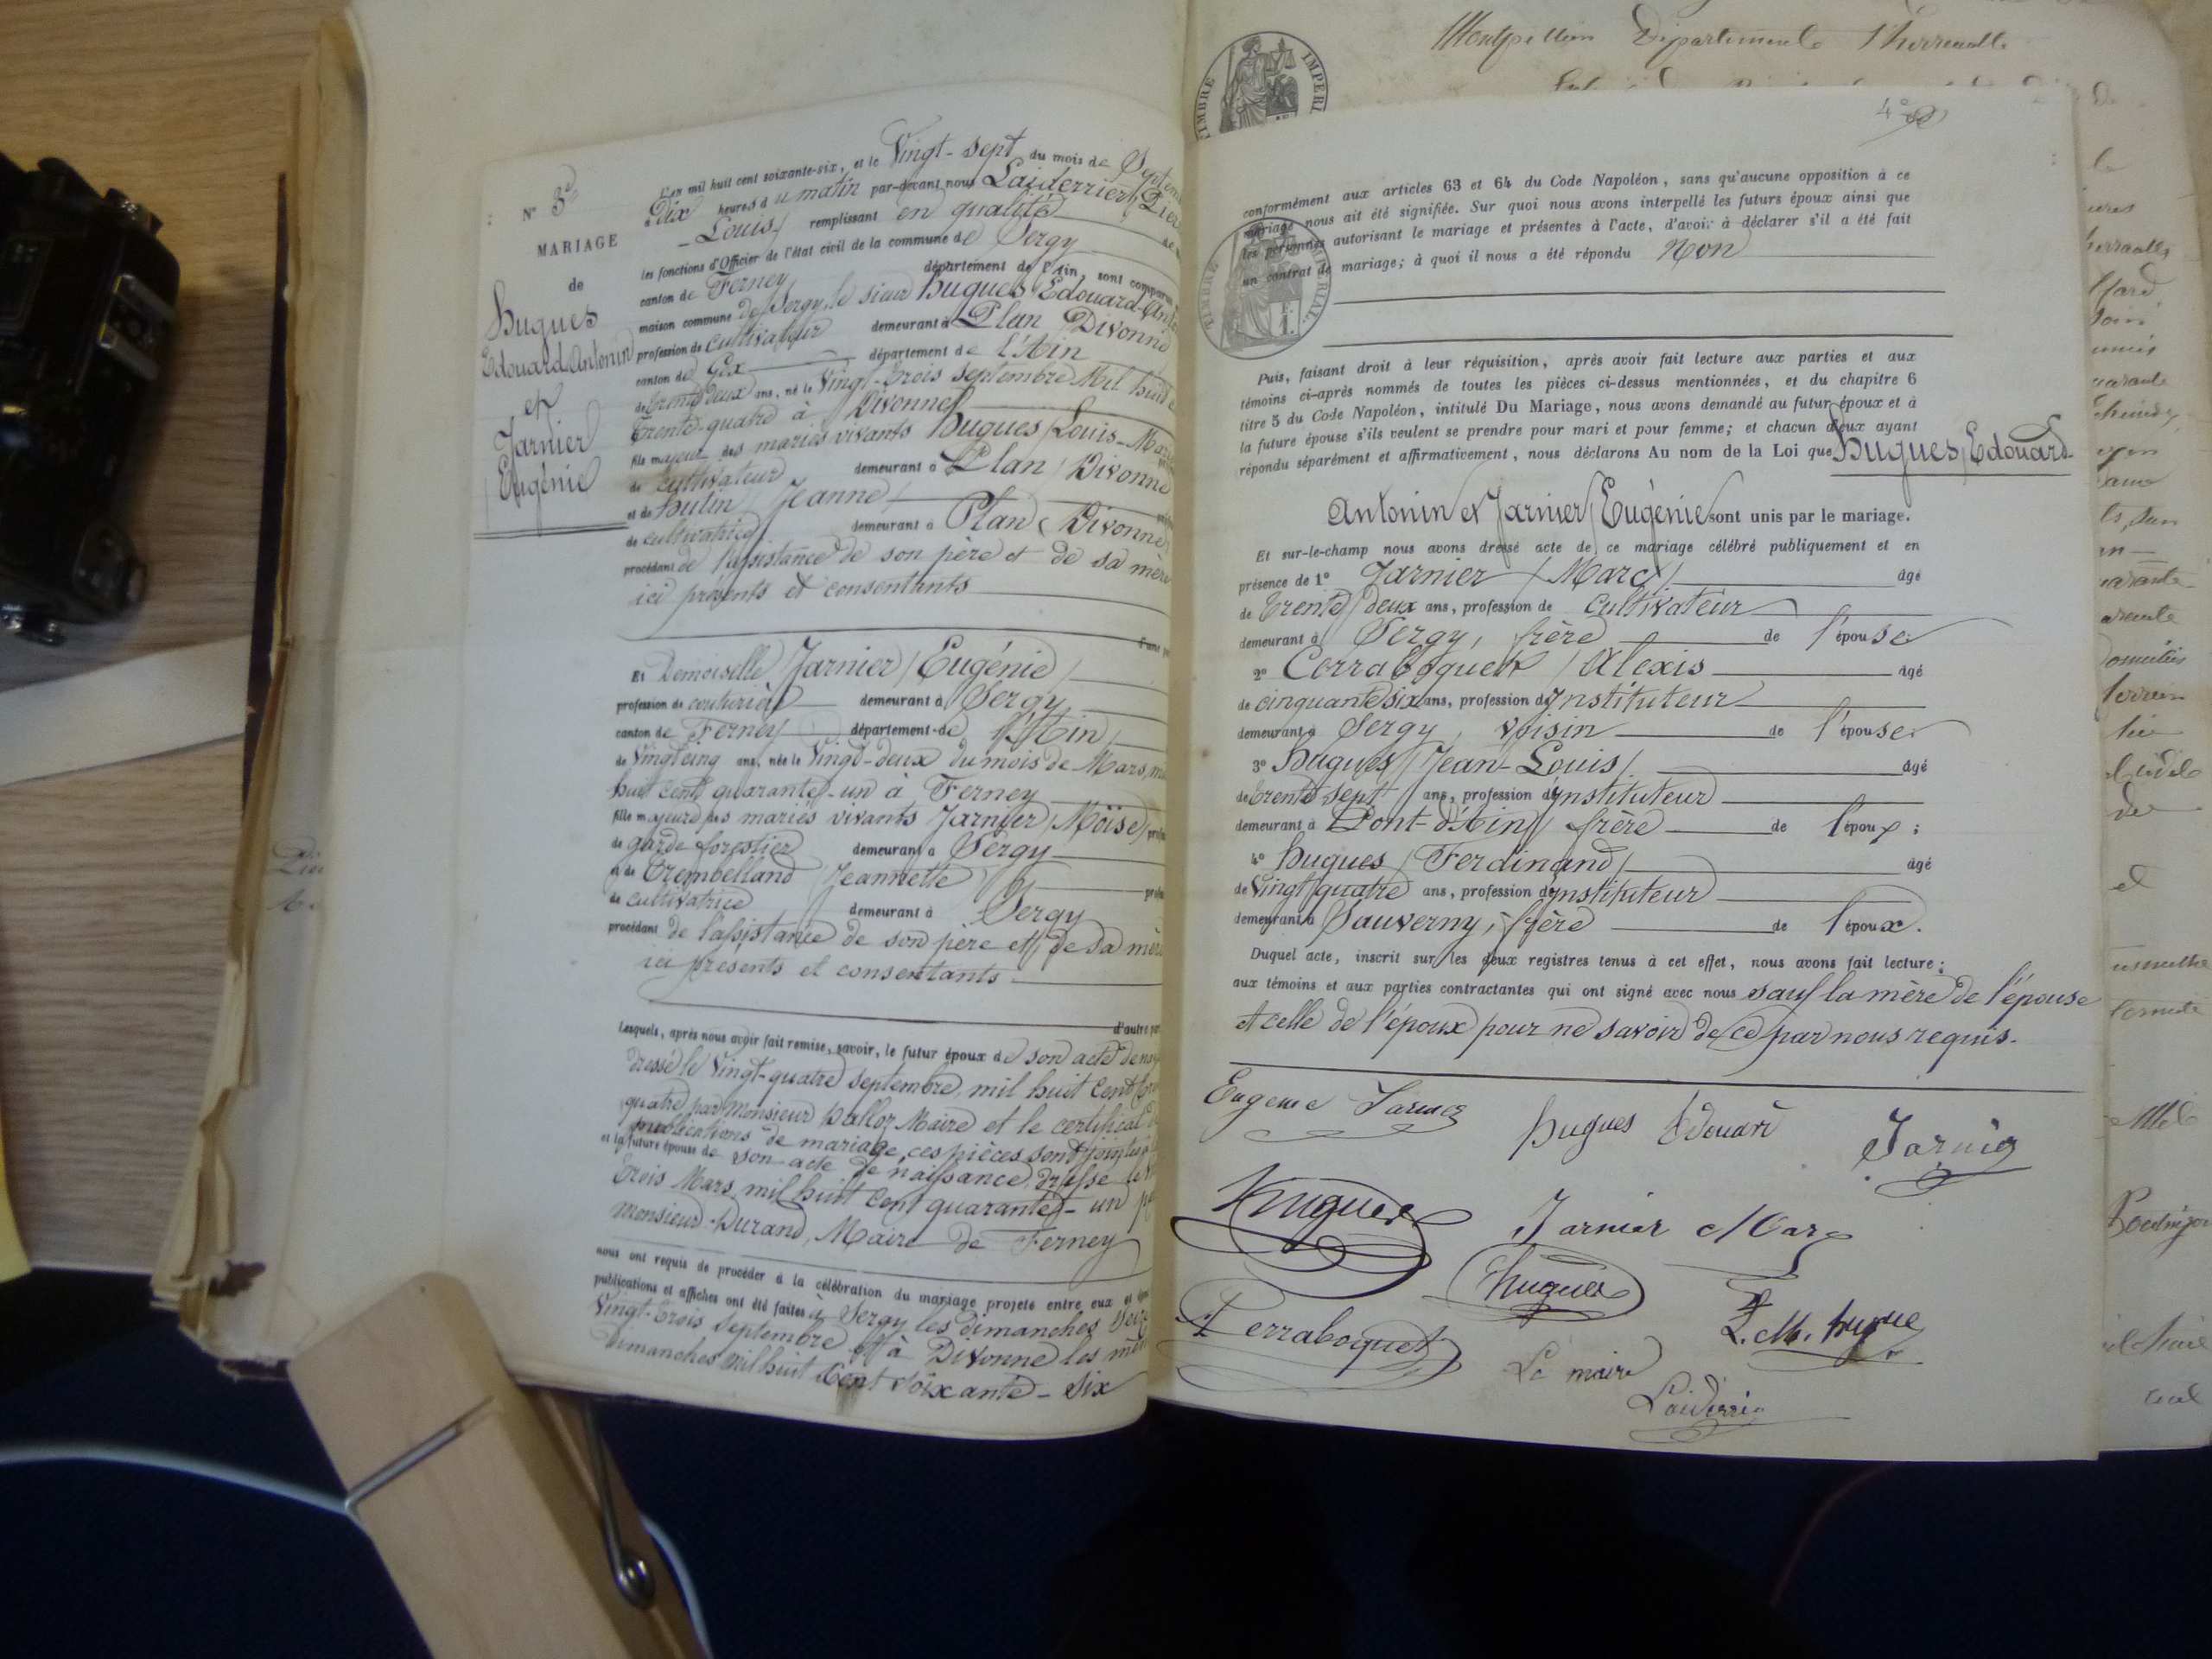 N° 3
MARIAGE
de
Hugues
Edouard Antonin
et
Jarnier
Eugénie
L'an mil huit cent soixante-six, et le Vingt-sept du mois de Septem
Dix heures du matin par-devant nous Laiderrier
Louis remplissant en qualité
les fonctions d'Officier de l'état civil de la commune de Sergy
canton de Ferney département de l'Ain, sont comparus
maison commune de Sergy, le sieur Hugues Edouard-An
profession de Cultivateur demeurant à Plan Divonne
canton de Gex département de l'Ain
de trente deux ans, né le Vingt-trois septembre Mil huit c
trente-quatre à Divonne
fils majeur des mariés vivants Hugues Louis-Mari
de cultivateur demeurant à Plan Divonne
et de Hutin Jeanne
de cultivatrice demeurant à Plan Divonne
procédant de l'assistance de son père et de sa mère
ici présents et consentants
d'une pa
Et Demoiselle Jarnier Eugénie
profession de couturière demeurant à Sergy
canton de Ferney département de l'Ain
de Vingt cinq ans, née le Vingt-deux du mois de Mars, mi
huit cent quarante-un à Ferney
fille majeure des mariés vivants Jarnier Moïse profe
de garde forestier demeurant à Sergy
et de Trembelland Jeannette profe
de cultivatrice demeurant à Sergy
procédant de l'assistance de son père et de sa mère
ici présents et consentants
d'autre par
Lesquels, après nous avoir fait remise, savoir, le futur époux de son acte de nai
dressé le Vingt-quatre septembre, mil huit cent tre
quatre par Monsieur Maire et le certificat d
publications de mariage, ces pièces sont jointes
et la future épouse de son acte de naissance, dressé le
trois Mars, mil huit cent quarante-un pa
Monsieur Durand, Maire de Ferney
nous ont requis de procéder à la célébration du mariage projeté entre eux et
publications et affiches ont été faites à Sergy les dimanches Seize
Vingt-trois septembre et à Divonne les mê
Dimanches mil huit cent soixante-six
4e
TIMBRE IMPERIAL
conformément aux articles 63 et 64 du Code Napoléon, sans qu'aucune opposition à ce
mariage nous ait été signifiée. Sur quoi nous avons interpellé les futurs époux ainsi que
les personnes autorisant le mariage et présentes à l'acte, d'avoir à déclarer s'il a été fait
un contrat de mariage; à quoi il nous a été répondu Non
Puis, faisant droit à leur réquisition, après avoir fait lecture aux parties et aux
témoins ci-après nommés de toutes les pièces ci-dessus mentionnées, et du chapitre 6
titre 5 du Code Napoléon, intitulé Du Mariage, nous avons demandé au futur époux et à
la future épouse s'ils veulent se prendre pour mari et pour femme; et chacun d'eux ayant
répondu séparément et affirmativement, nous déclarons Au nom de la Loi que Hugues Edouard
Antonin et Jarnier Eugénie sont unis par le mariage.
Et sur-le-champ nous avons dressé acte de ce mariage célébré publiquement et en
présence de 1° Jarnier Marc âgé
de trente deux ans, profession de cultivateur
demeurant à Sergy, frère de l'épouse
2° Corraboquet Alexis âgé
de cinquante six ans, profession d'Instituteur
demeurant à Sergy, voisin de l'épouse
3° Hugues Jean-Louis âgé
de trente sept ans, profession d'Instituteur
demeurant à Pont-d'Ain frère de l'époux;
4° Hugues Ferdinand âgé
de Vingt quatre ans, profession d'Instituteur
demeurant à Sauverny, frère de l'époux.
Duquel acte, inscrit sur les deux registres tenus à cet effet, nous avons fait lecture;
aux témoins et aux parties contractantes qui ont signé avec nous sauf la mère de l'épouse
et celle de l'époux pour ne savoir de ce par nous requis.
Eugénie Jarnier
Hugues Edouard
Jarnier
Hugues
Jarnier Marc
Hugues
Ferraboquet
L. M. hugue
Le maire
Laiderrier